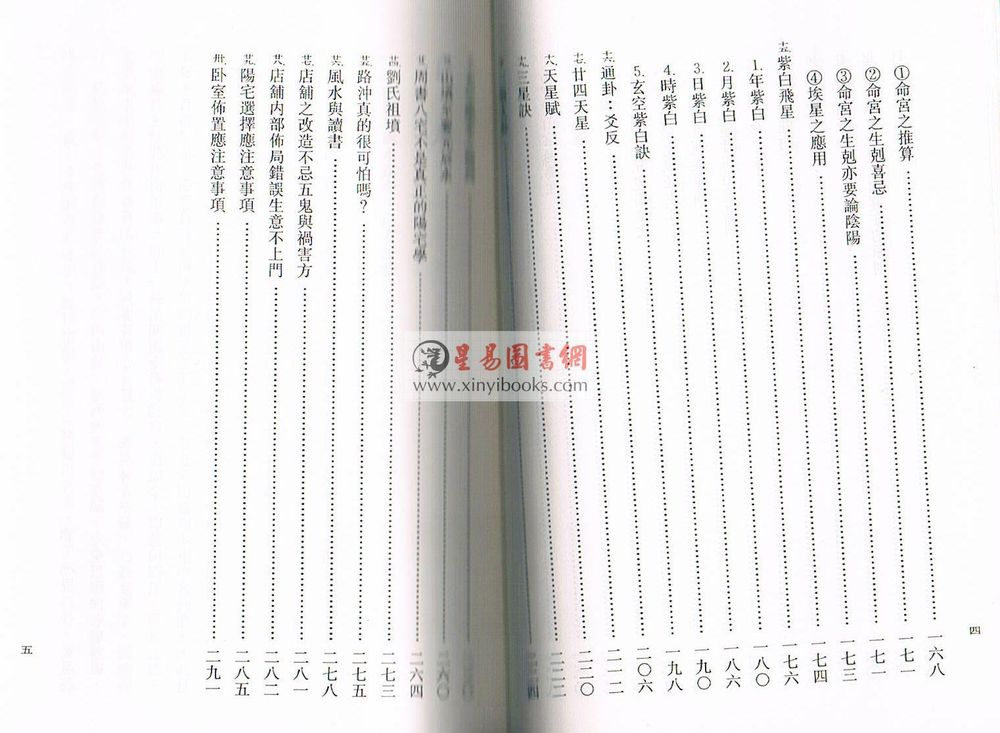 ①命宮之推算……一六八
②命宮之生剋喜忌……一七一
③命宮之生剋亦要論陰陽……一七三
④埃星之應用……一七四
十五、紫白飛星……一七六
1.年紫白……一八〇
2.月紫白……一八六
3.日紫白……一九〇
4.時紫白……一九八
5.玄空紫白訣……二〇六
十六、通卦：爻反……二一二
十七、廿四天星……二二〇
十八、天星賦……二三二
十九、三星訣
四
周書八宅不是真正的陽宅學……二六四
劉氏祖墳……二七三
路沖真的很可怕嗎？……二七五
風水與讀書……二七八
店舖之改造不忌五鬼與禍害方……二八一
店舖内部佈局錯誤生意不上門……二八二
陽宅選擇應注意事項……二八五
卧室佈置應注意事項……二九一
五
星易圖書網
www.xinyibooks.com